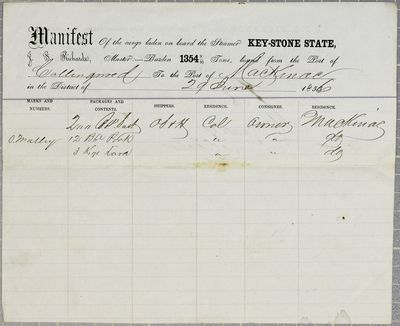 Manifest Of the cargo laden on board the Steamer KEY-STONE STATE,
Richards, Master—Burden 1354 Tons, bound from the Port of
Collingwood To the Port of Mackinac
in the District of 29 June 186
MARKS AND NUMBERS. PACKAGES AND CONTENTS. SHIPPERS. RESIDENCE. CONSIGNEE. RESIDENCE.
Col Owner Mackinac
O. Malley 12 Bls Pork " " do
3 Kgs Lard " " do